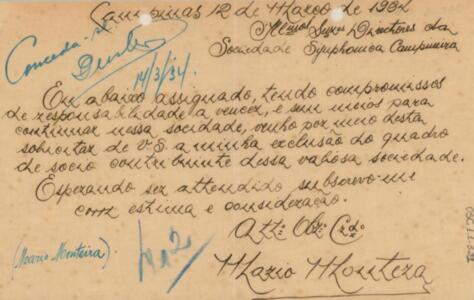 Campinas 12 de Março de 1934
Illmos Snres Directores da
Sociedade Symphonica Campineira
Conceda-se
14/3/34
Eu abaixo assignado, tendo compromissos
de responsabilidade a vencer, e sem meios para
continuar nessa sociedade, venho por meio desta
solicitar de V.S. a minha exclusão do quadro
de socio contribuinte dessa valiosa sociedade.
Esperando ser attendido subscrevo-me
com estima e consideração.
Attº Obrº Crdº
(Mario Monteira).
Nº 2
Mario Monteira